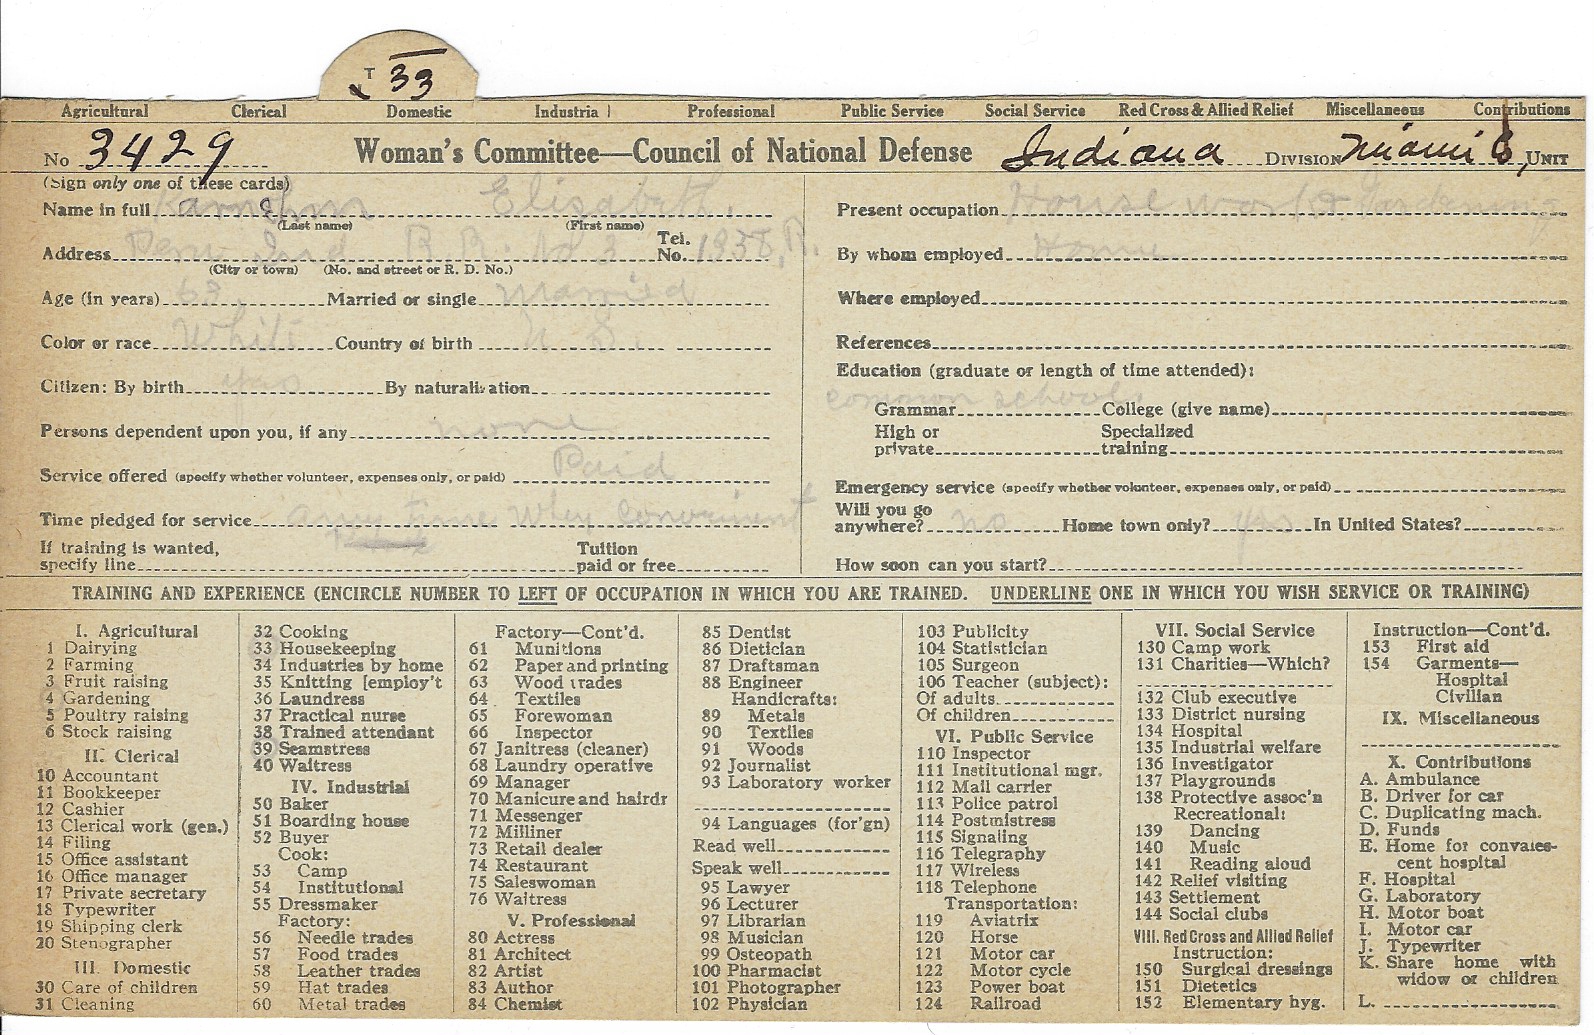 T 33
Agricultural Clerical Domestic Industrial Professional Public Service Social Service Red Cross & Allied Relief Miscellaneous Contributions
No 3429 Woman's Committee—Council of National Defense Indiana DIVISION Miami 6, UNIT
(Sign only one of these cards)
Name in full Elisabeth.
(Last name) (First name)
Address Peru Ind R R No 3 Tel. No. 1938, R.
(City or town) (No. and street or R. D. No.)
Age (in years) 63 Married or single Married
Color or race White Country of birth U S.
Citizen: By birth yes By naturalization
Persons dependent upon you, if any none
Service offered (specify whether volunteer, expenses only, or paid) Paid
Time pledged for service any time when convenient
If training is wanted,
specify line Tuition paid or free
Present occupation House work & Gardening
By whom employed Home
Where employed
References
Education (graduate or length of time attended):
common school
Grammar College (give name)
High or private Specialized training
Emergency service (specify whether volunteer, expenses only, or paid)
Will you go anywhere? no Home town only? yes In United States?
How soon can you start?
TRAINING AND EXPERIENCE (ENCIRCLE NUMBER TO LEFT OF OCCUPATION IN WHICH YOU ARE TRAINED. UNDERLINE ONE IN WHICH YOU WISH SERVICE OR TRAINING)
I. Agricultural
1 Dairying
2 Farming
3 Fruit raising
4 Gardening
5 Poultry raising
6 Stock raising
II. Clerical
10 Accountant
11 Bookkeeper
12 Cashier
13 Clerical work (gen.)
14 Filing
15 Office assistant
16 Office manager
17 Private secretary
18 Typewriter
19 Shipping clerk
20 Stenographer
III. Domestic
30 Care of children
31 Cleaning
32 Cooking
33 Housekeeping
34 Industries by home
35 Knitting [employ't
36 Laundress
37 Practical nurse
38 Trained attendant
39 Seamstress
40 Waitress
IV. Industrial
50 Baker
51 Boarding house
52 Buyer
Cook:
53 Camp
54 Institutional
55 Dressmaker
Factory:
56 Needle trades
57 Food trades
58 Leather trades
59 Hat trades
60 Metal trades
Factory—Cont'd.
61 Munitions
62 Paper and printing
63 Wood trades
64 Textiles
65 Forewoman
66 Inspector
67 Janitress (cleaner)
68 Laundry operative
69 Manager
70 Manicure and hairdr
71 Messenger
72 Milliner
73 Retail dealer
74 Restaurant
75 Saleswoman
76 Waitress
V. Professional
80 Actress
81 Architect
82 Artist
83 Author
84 Chemist
85 Dentist
86 Dietician
87 Draftsman
88 Engineer
Handicrafts:
89 Metals
90 Textiles
91 Woods
92 Journalist
93 Laboratory worker
94 Languages (for'gn)
Read well
Speak well
95 Lawyer
96 Lecturer
97 Librarian
98 Musician
99 Osteopath
100 Pharmacist
101 Photographer
102 Physician
103 Publicity
104 Statistician
105 Surgeon
106 Teacher (subject):
Of adults
Of children
VI. Public Service
110 Inspector
111 Institutional mgr.
112 Mail carrier
113 Police patrol
114 Postmistress
115 Signaling
116 Telegraphy
117 Wireless
118 Telephone
Transportation:
119 Aviatrix
120 Horse
121 Motor car
122 Motor cycle
123 Power boat
124 Railroad
VII. Social Service
130 Camp work
131 Charities—Which?
132 Club executive
133 District nursing
134 Hospital
135 Industrial welfare
136 Investigator
137 Playgrounds
138 Protective assoc'n
Recreational:
139 Dancing
140 Music
141 Reading aloud
142 Relief visiting
143 Settlement
144 Social clubs
VIII. Red Cross and Allied Relief
Instruction:
150 Surgical dressings
151 Dietetics
152 Elementary hyg.
Instruction—Cont'd.
153 First aid
154 Garments—
Hospital
Civilian
IX. Miscellaneous
X. Contributions
A. Ambulance
B. Driver for car
C. Duplicating mach.
D. Funds
E. Home for convales-
cent hospital
F. Hospital
G. Laboratory
H. Motor boat
I. Motor car
J. Typewriter
K. Share home with
widow or children
L.